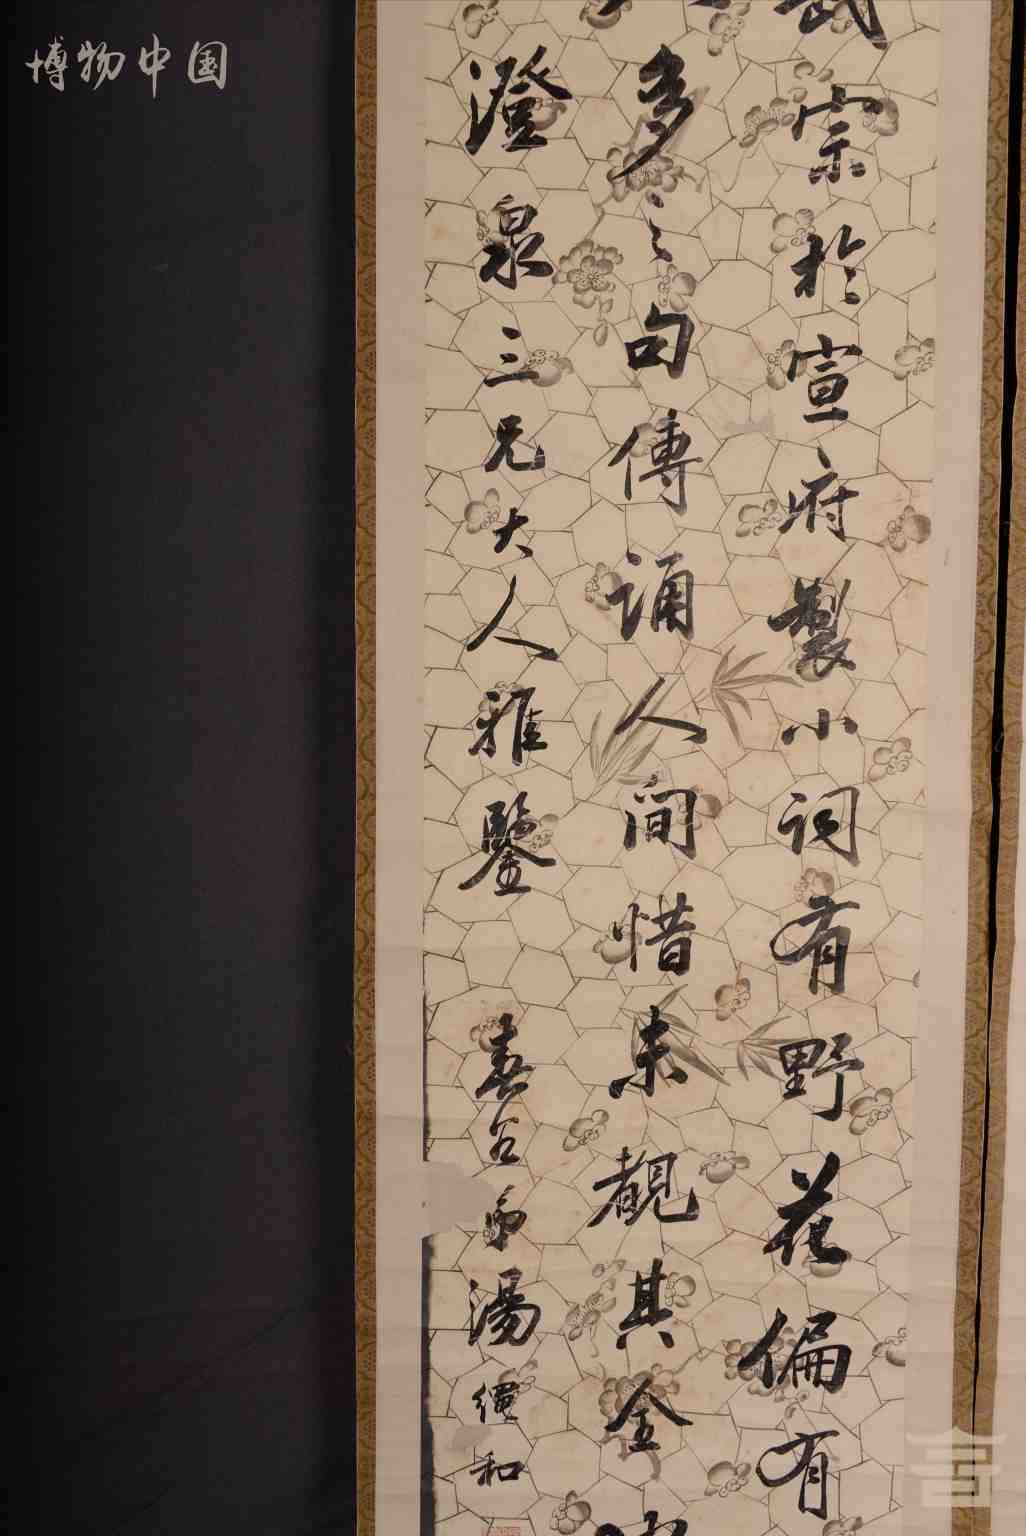 博物中国
武宗於宣府製小词有野花偏有
多々句傳诵人间惜未覩其全
澄泉三兄大人雅鑒 春谷弟湯繩和